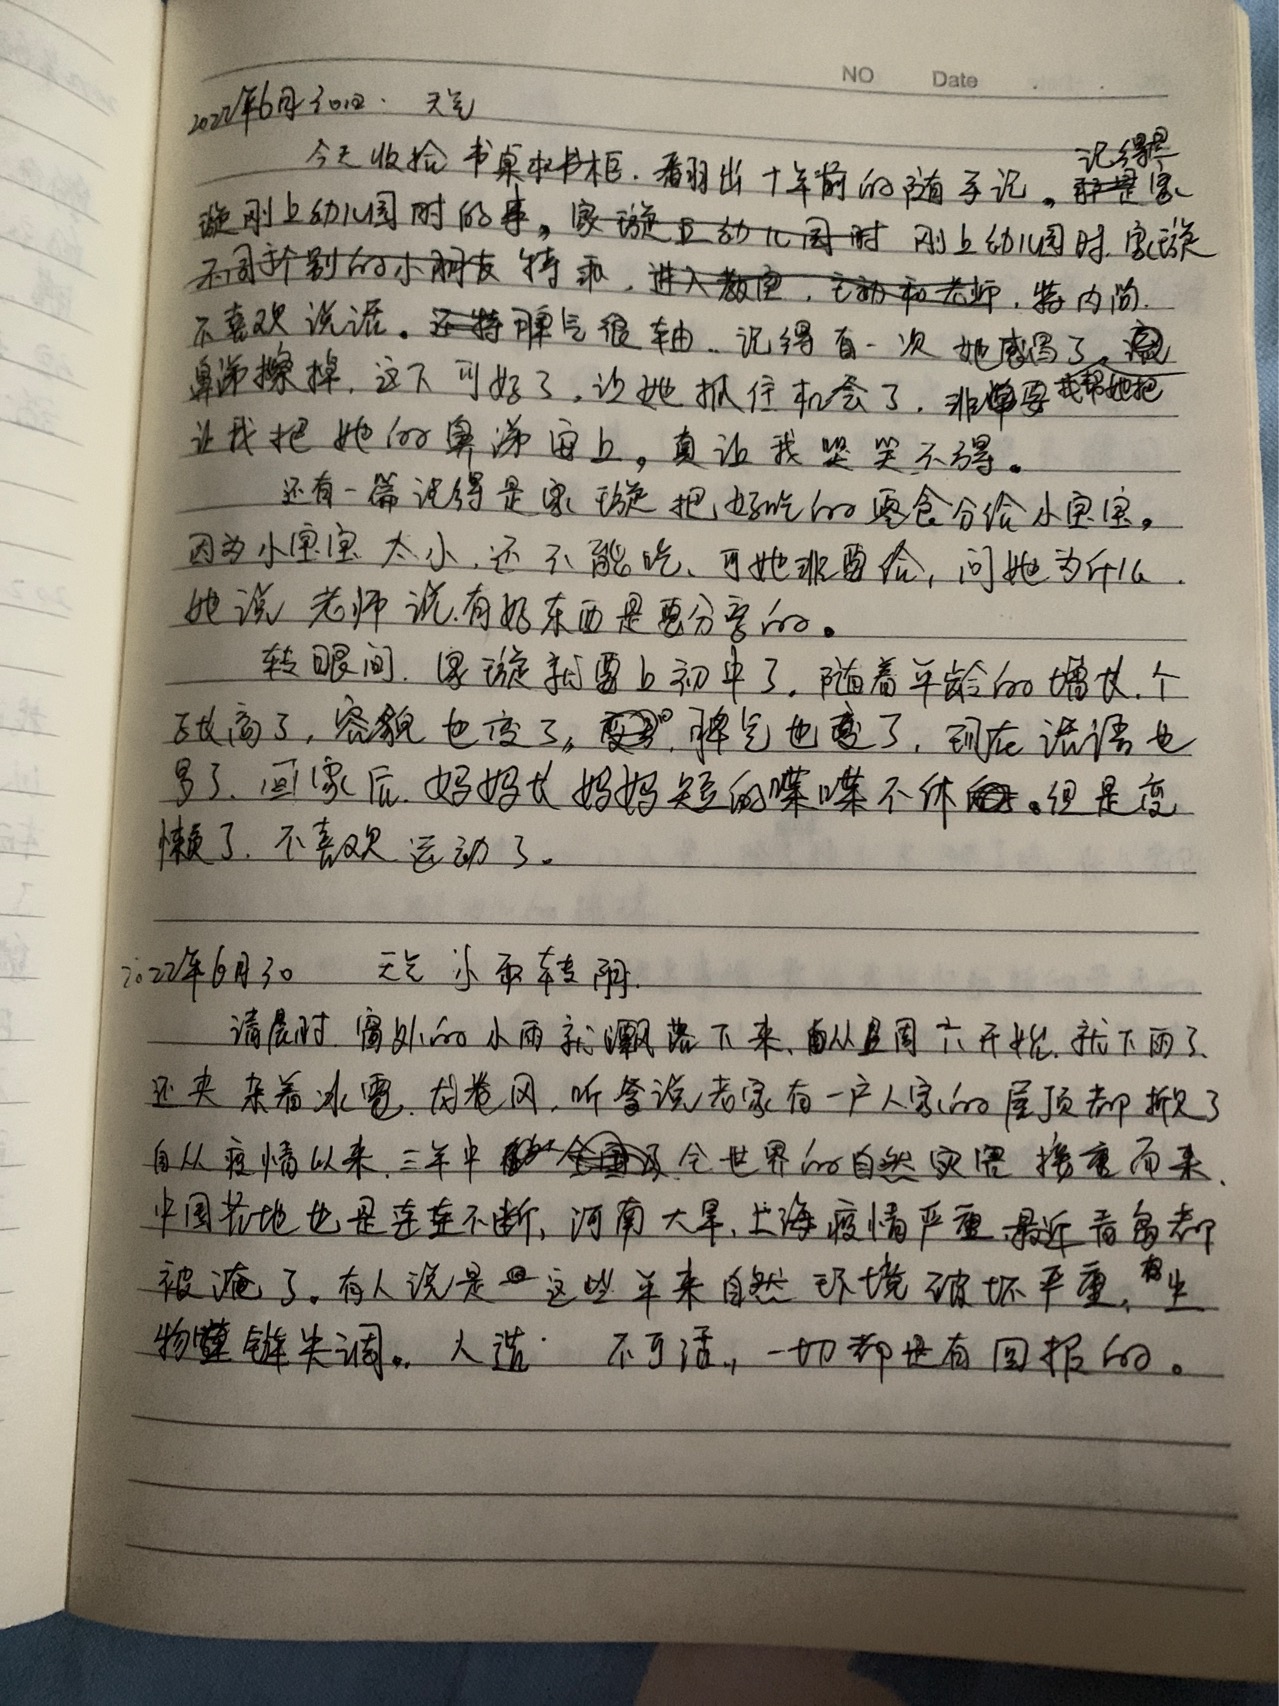 NO Date
2022年6月30日. 天气
今天收拾书桌和书柜.看翻出十年前的随手记。记得是家
璇刚上幼儿园时的事。家璇上幼儿园时 刚上幼儿园时.家璇
不同于个别的小朋友特乖.进入教室.主动和老师.特内向.
不喜欢说话。还特脾气很轴..记得有一次她感冒了。
鼻涕擦掉.这下可好了.让她抓住机会了.非要我帮她把
让我把她的鼻涕留上。真让我哭笑不得。
还有一篇记得是家璇把好吃的零食分给小宝宝。
因为小宝宝太小.还不能吃、可她非要给,问她为什么.
她说老师说.有好东西是要分享的。
转眼间.家璇就要上初中了.随着年龄的增长.个
子长高了,容貌也变了。脾气也变了,现在话语也
多了.回家后.妈妈长妈妈短的喋喋不休。但是变
懒了.不喜欢运动了。
2022年6月30 天气 小雨转阴.
清晨时.窗外的小雨就飘落下来、自从周六开始.就下雨了.
还夹杂着冰雹.龙卷风.听爹说老家有一户人家的屋顶都掀了
自从疫情以来.三年中 全世界的自然灾害接重而来.
中国各地也是连连不断,河南大旱、上海疫情严重.最近青岛都
被淹了。有人说是这些年来自然环境破坏严重,有生
物链失调。.人造 不可活,,一切都是有回报的。